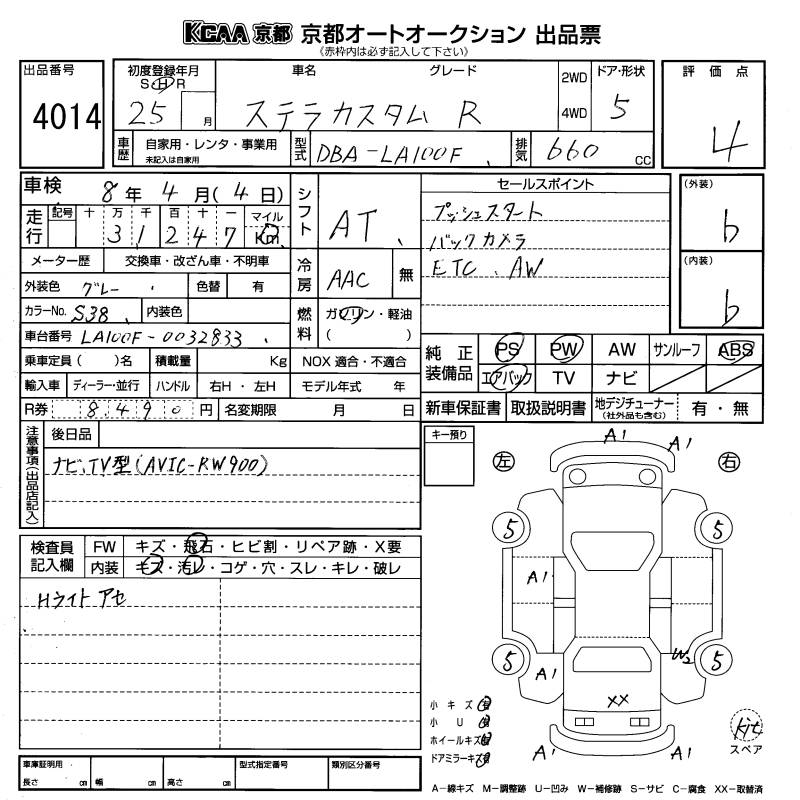 KCAA 京都 京都オートオークション 出品票
(赤枠内は必ず記入して下さい)
出品番号
4014
初度登録年月
S H R
25 月
車名 グレード
ステラカスタム R
2WD
4WD
ドア・形状
5
評価点
4
車歴
自家用・レンタ・事業用
未記入は自家用
型式
DBA-LA100F
排気
660 CC
車検 8年 4月(4日)
走行
記号 十 万 千 百 十 一 マイル
3 1 2 4 7 Km
シフト
AT
メーター歴 交換車・改ざん車・不明車
外装色 グレー 色替 有
冷房
AAC 無
カラーNo. S38 内装色
車台番号 LA100F-0032833
燃料
ガソリン・軽油
( )
乗車定員( )名 積載量 Kg NOX 適合・不適合
輸入車 ディーラー・並行 ハンドル 右H・左H モデル年式 年
R券 8,490 円 名変期限 月 日
セールスポイント
プッシュスタート
バックカメラ
ETC、AW
(外装)
b
(内装)
b
純正装備品
PS PW AW サンルーフ ABS
エアバック TV ナビ
新車保証書 取扱説明書 地デジチューナー(社外品も含む) 有・無
注意事項(出品店記入)
後日品
ナビ、TV型(AVIC-RW900)
検査員記入欄
FW キズ・飛石・ヒビ割・リペア跡・X要
内装 キズ・汚レ・コゲ・穴・スレ・キレ・破レ
Hライトアセ
キー預り
左 右
A1 A1
5 5
A1
5 5
A1 W2
XX
A1 A1
小キズ 有
小U 有
ホイールキズ 有
ドアミラーキズ 有
kit
スペア
車庫証明用
長さ cm 幅 cm 高さ cm
型式指定番号
類別区分番号
A-線キズ M-調整跡 U-凹み W-補修跡 S-サビ C-腐食 XX-取替済